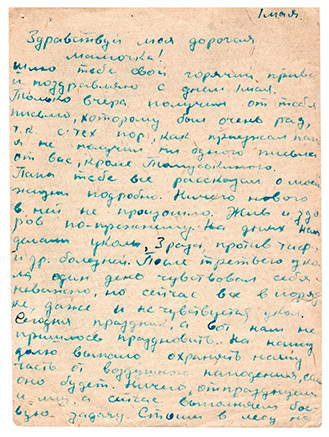 1 мая.
Здравствуй моя дорогая
мамочка!
Шлю тебе свой горячий приве
и поздравляю с днем 1 мая.
Только вчера получил от тебя
письмо, которому был очень рад,
т.к. с тех пор, как приезжал пап
я не получил ни одного письма
от вас, кроме
Папа тебе все рассказал о моей
жизни подробно. Ничего нового
в ней не произошло. Жив и здо
ров по-прежнему. На днях нам
делали укол, 3 раза, против тиф.
и др. болезней. После третьего уко
ла один день чувствовал себя
неважно, но сейчас все в поряд
ке, даже и не чувствуется укол.
Сегодня праздник, а вот нам не
пришлось праздновать. На нашу
долю выпало охранять нашу
часть от воздушного нападения, если
оно будет. Ничего, отпразднуем
и мы, а сейчас выполняем бое
вую задачу. Стоим в лесу на